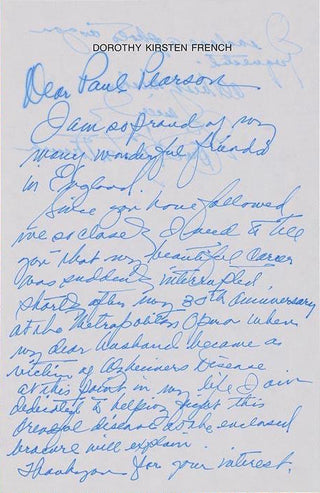 DOROTHY KIRSTEN FRENCH
Dear Paul Pearson
I am so proud of my
many wonderful friends
in England.
Since you have followed
me so closely I need to tell
you that my beautiful career
was suddenly interrupted,
shortly after my 30th Anniversary
at the Metropolitan Opera when
my dear husband became a
victim of Alzheimers Disease
at this point in my life I am
dedicated to helping fight this
dreadful disease as the enclosed
brocure will explain.
Thank you for your interest.